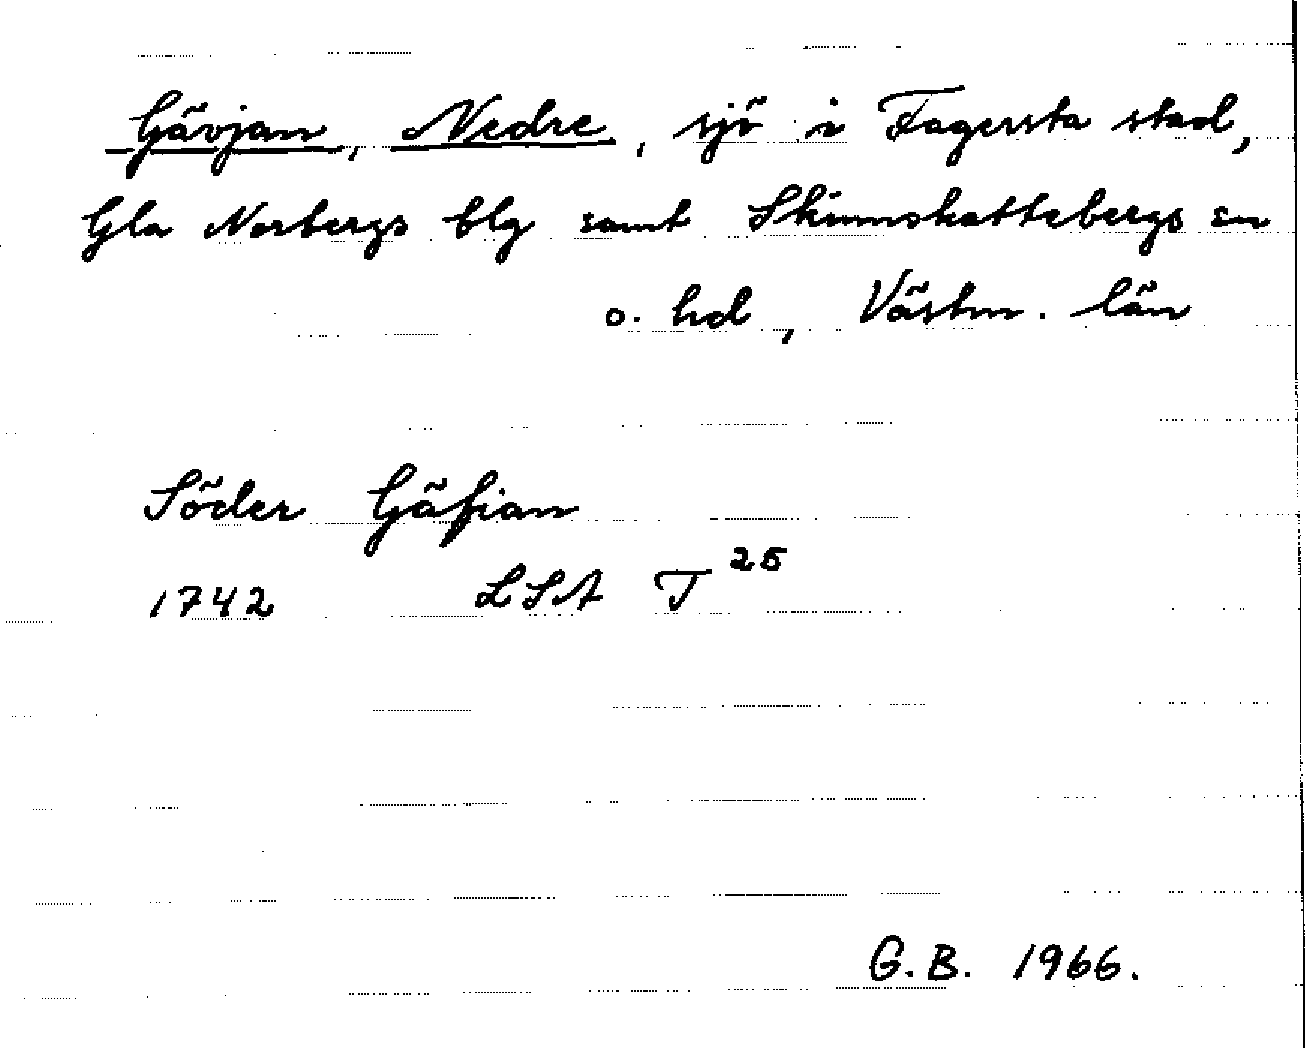 Gävjan, Nedre, sjö i Fagersta stad,
Gla Norbergs blg samt Skinnskattebergs sn
o. hd, Västm. län
Söder Gäfian
1742 LSA T 25
G.B. 1966.